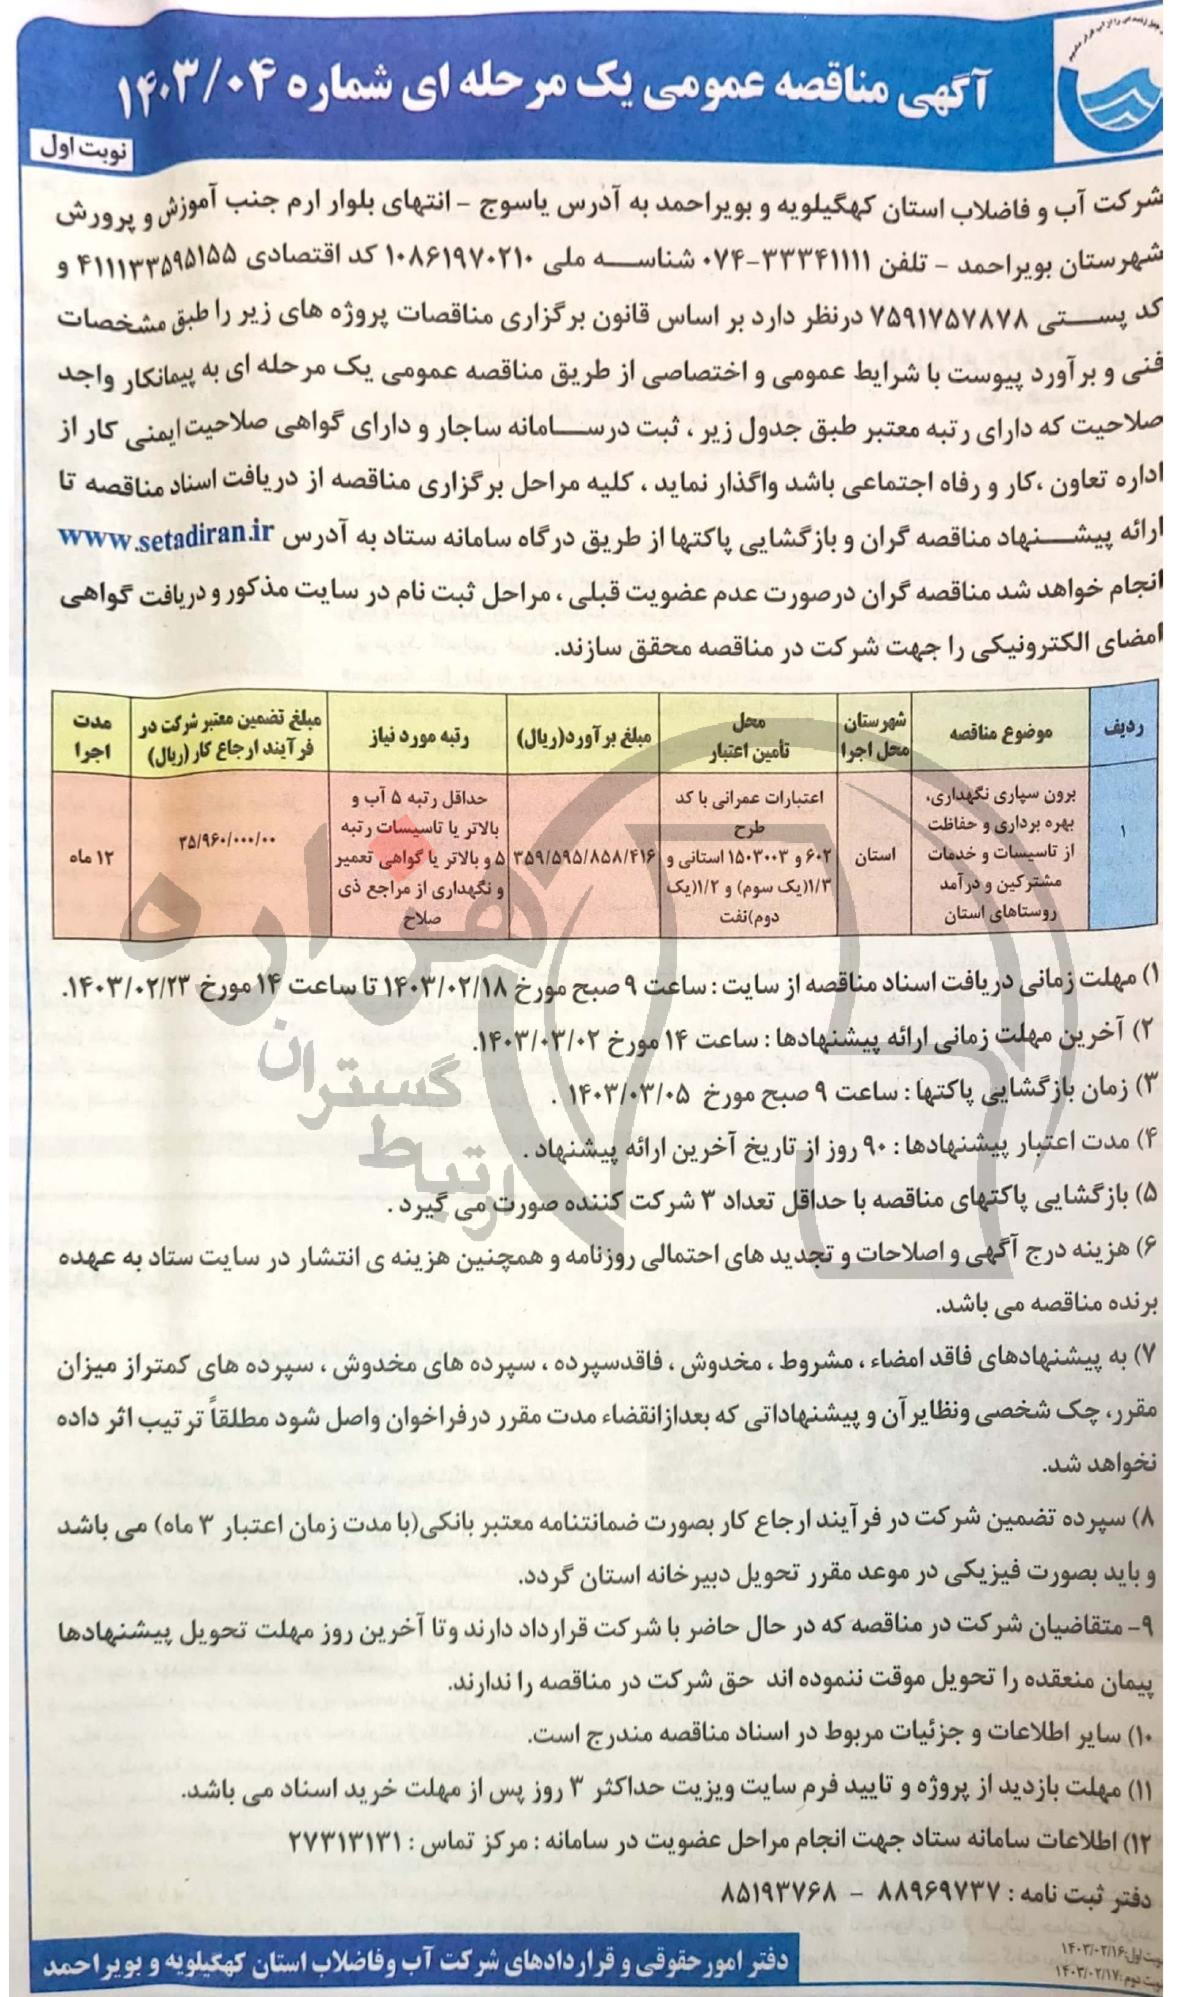 آگهی مناقصه عمومی یک مرحله ای شماره ۱۴۰۳/۰۴
نوبت اول
شرکت آب و فاضلاب استان کهگیلویه و بویراحمد به آدرس یاسوج - انتهای بلوار ارم جنب آموزش و پرورش
شهرستان بویراحمد - تلفن ۳۳۳۴۱۱۱۱-۰۷۴ شناسه ملی ۱۰۸۶۱۹۷۰۲۱۰ کد اقتصادی ۴۱۱۱۳۳۵۹۵۱۵۵ و
کد پستی ۷۵۹۱۷۵۷۸۷۸ درنظر دارد بر اساس قانون برگزاری مناقصات پروژه های زیر را طبق مشخصات
فنی و برآورد پیوست با شرایط عمومی و اختصاصی از طریق مناقصه عمومی یک مرحله ای به پیمانکار واجد
صلاحیت که دارای رتبه معتبر طبق جدول زیر ، ثبت درسامانه ساجار و دارای گواهی صلاحیت ایمنی کار از
اداره تعاون ،کار و رفاه اجتماعی باشد واگذار نماید ، کلیه مراحل برگزاری مناقصه از دریافت اسناد مناقصه تا
ارائه پیشنهاد مناقصه گران و بازگشایی پاکتها از طریق درگاه سامانه ستاد به آدرس www.setadiran.ir
انجام خواهد شد مناقصه گران درصورت عدم عضویت قبلی ، مراحل ثبت نام در سایت مذکور و دریافت گواهی
امضای الکترونیکی را جهت شرکت در مناقصه محقق سازند.
ردیف
موضوع مناقصه
شهرستان
محل اجرا
محل
تأمین اعتبار
مبلغ برآورد(ریال)
رتبه مورد نیاز
مبلغ تضمین معتبر شرکت در
فرآیند ارجاع کار (ریال)
مدت
اجرا
۱
برون سپاری نگهداری،
بهره برداری و حفاظت
از تاسیسات و خدمات
مشترکین و درآمد
روستاهای استان
استان
اعتبارات عمرانی با کد
طرح
۶۰۲ و ۱۵۰۳۰۰۳ استانی و
۱/۳(یک سوم) و ۱/۲(یک
دوم)نفت
۳۵۹/۵۹۵/۸۵۸/۴۱۶
حداقل رتبه ۵ آب و
بالاتر یا تاسیسات رتبه
۵ و بالاتر یا گواهی تعمیر
و نگهداری از مراجع ذی
صلاح
۳۵/۹۶۰/۰۰۰/۰۰
۱۲ ماه
۱) مهلت زمانی دریافت اسناد مناقصه از سایت : ساعت ۹ صبح مورخ ۱۴۰۳/۰۲/۱۸ تا ساعت ۱۴ مورخ ۱۴۰۳/۰۲/۲۳.
۲) آخرین مهلت زمانی ارائه پیشنهادها : ساعت ۱۴ مورخ ۱۴۰۳/۰۳/۰۲.
۳) زمان بازگشایی پاکتها : ساعت ۹ صبح مورخ ۱۴۰۳/۰۳/۰۵ .
۴) مدت اعتبار پیشنهادها : ۹۰ روز از تاریخ آخرین ارائه پیشنهاد .
۵) بازگشایی پاکتهای مناقصه با حداقل تعداد ۳ شرکت کننده صورت می گیرد .
۶) هزینه درج آگهی و اصلاحات و تجدید های احتمالی روزنامه و همچنین هزینه ی انتشار در سایت ستاد به عهده
برنده مناقصه می باشد.
۷) به پیشنهادهای فاقد امضاء ، مشروط ، مخدوش ، فاقدسپرده ، سپرده های مخدوش ، سپرده های کمتراز میزان
مقرر، چک شخصی ونظایرآن و پیشنهاداتی که بعدازانقضاء مدت مقرر درفراخوان واصل شود مطلقاً ترتیب اثر داده
نخواهد شد.
۸) سپرده تضمین شرکت در فرآیند ارجاع کار بصورت ضمانتنامه معتبر بانکی(با مدت زمان اعتبار ۳ ماه) می باشد
و باید بصورت فیزیکی در موعد مقرر تحویل دبیرخانه استان گردد.
۹- متقاضیان شرکت در مناقصه که در حال حاضر با شرکت قرارداد دارند وتا آخرین روز مهلت تحویل پیشنهادها
پیمان منعقده را تحویل موقت ننموده اند حق شرکت در مناقصه را ندارند.
۱۰) سایر اطلاعات و جزئیات مربوط در اسناد مناقصه مندرج است.
۱۱) مهلت بازدید از پروژه و تایید فرم سایت ویزیت حداکثر ۳ روز پس از مهلت خرید اسناد می باشد.
۱۲) اطلاعات سامانه ستاد جهت انجام مراحل عضویت در سامانه : مرکز تماس : ۲۷۳۱۳۱۳۱
دفتر ثبت نامه : ۸۸۹۶۹۷۳۷ - ۸۵۱۹۳۷۶۸
نوبت اول:۱۴۰۳/۰۲/۱۶
نوبت دوم:۱۴۰۳/۰۲/۱۷
دفتر امورحقوقی و قراردادهای شرکت آب وفاضلاب استان کهگیلویه و بویراحمد
هزاره
گستران
ارتباط